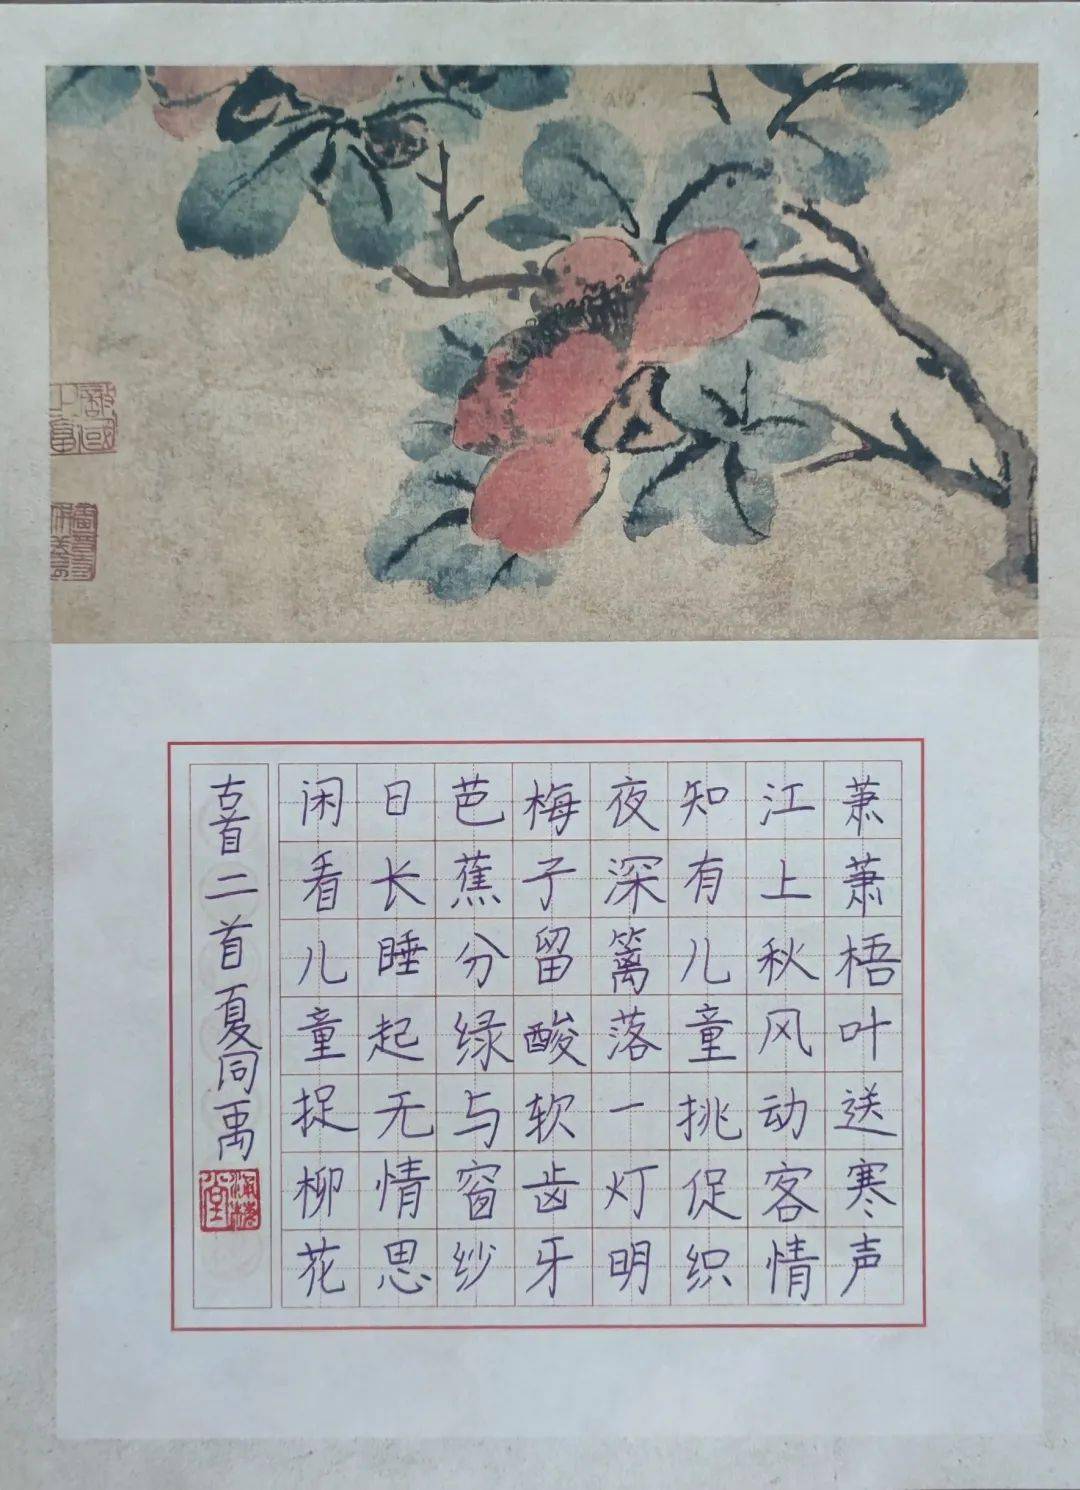 萧萧梧叶送寒声
江上秋风动客情
知有儿童挑促织
夜深篱落一灯明
梅子留酸软齿牙
芭蕉分绿与窗纱
日长睡起无情思
闲看儿童捉柳花
古首二首夏同禹